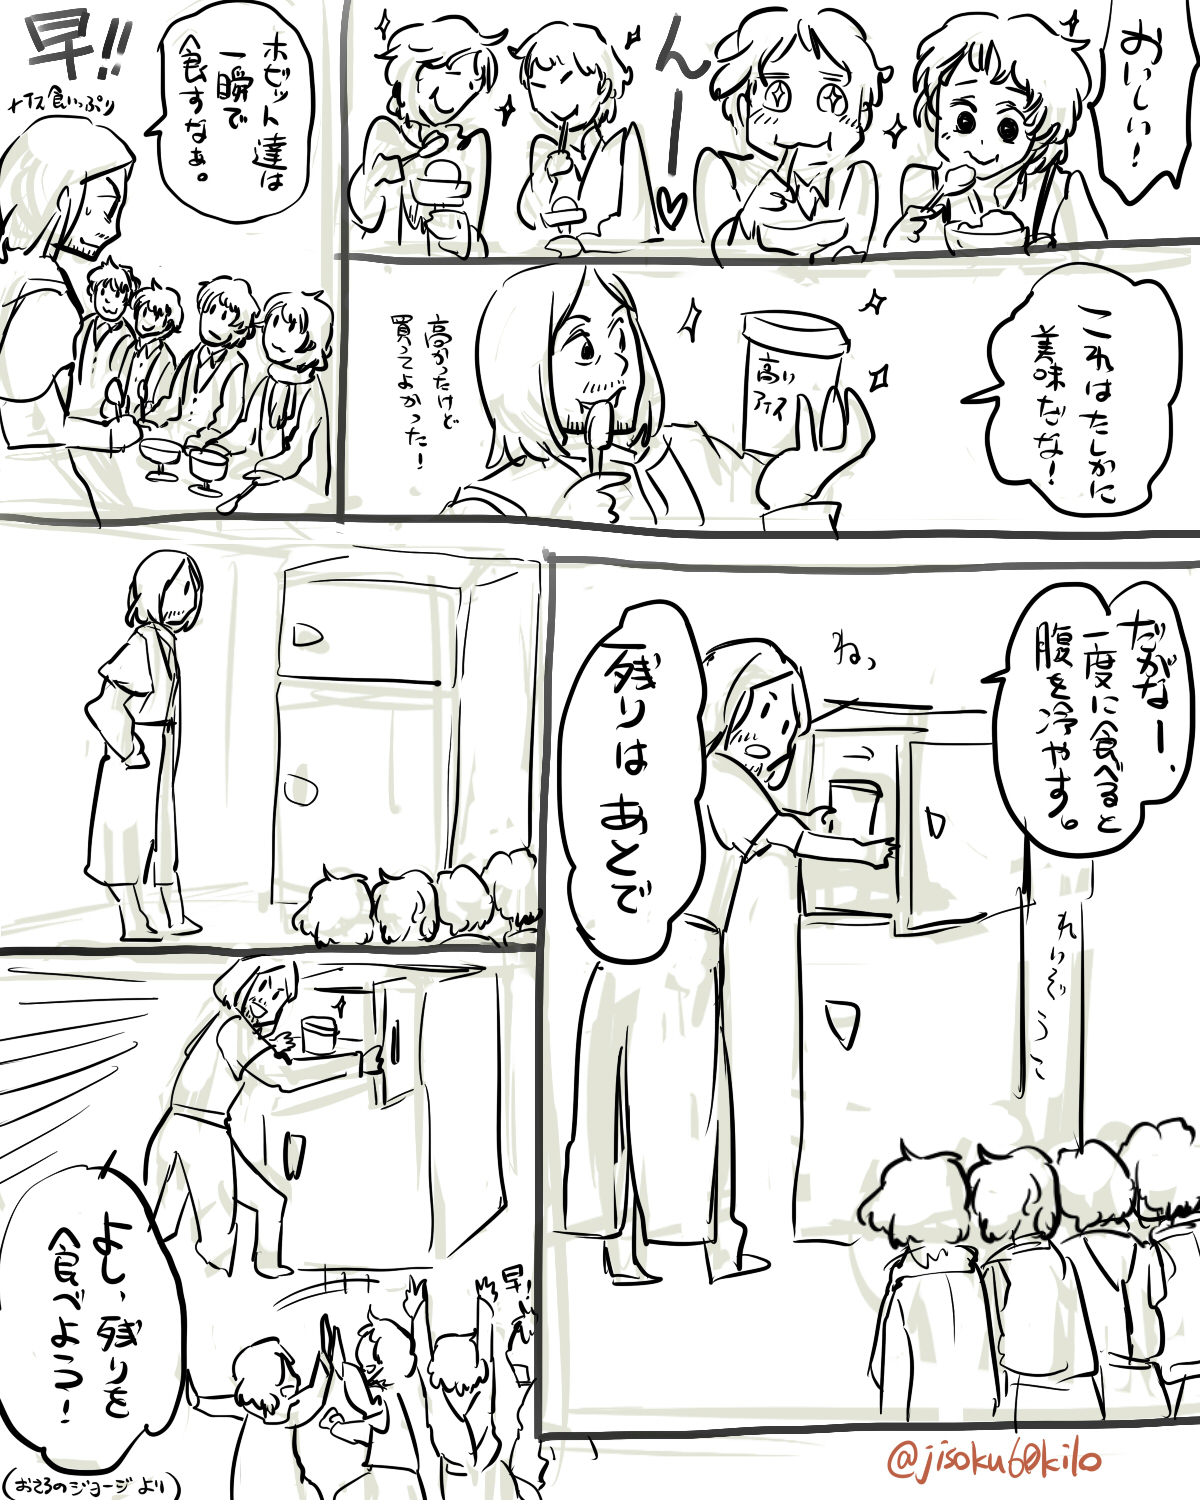 おいしい！
んー♡
ホビット達は
一瞬で
食すなぁ。
早!!
ナイス食いっぷり
これはたしかに
美味だな！
高い
アイス
高かったけど
買ってよかった！
だがなー、
一度に食べると
腹を冷やす。
ねっ
残りはあとで
れいぞうこ
よし、残りを
食べよう！
早！
(おさるのジョージより)
@jisoku60kilo